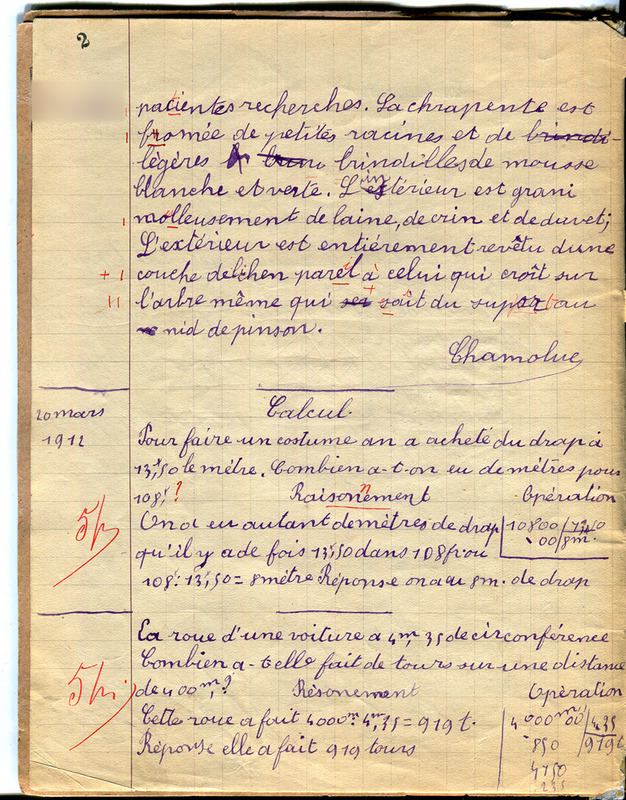 2
pacientes recherches. La chrapente est
fromée de petites racines et de brindi-
légères brindilles de mousse
blanche et verte. L'intérieur est grani
molleusement de laine, de crin et de duvet;
L'extérieur est entiérement revêtu dune
couche de lichen parel à celui qui croît sur
l'arbre même qui soit du suport au
nid de pinson.
Chamolue
20 mars
1912
Calcul.
Pour faire un costume on a acheté du drap à
13f,50 le mètre. Combien a-t-on eu de mètres pour
108f ?
Raisonement
Opération
On a eu autant de mètres de drap
qu'il y a de fois 13f,50 dans 108f ou
108f : 13f,50 = 8 mètre Réponse on a eu 8m. de drap
10800 / 13,50
00 / 8m.
5p
La roue d'une voiture a 4m,35 de circonférence
Combien a-t-elle fait de tours sur une distance
de 4000m, ?
Résonement
Opération
Cette roue a fait 4000m : 4m,35 = 919 t.
Réponse elle a fait 919 tours
4000m00 / 4,35
850 / 919 t
4150
235
5p